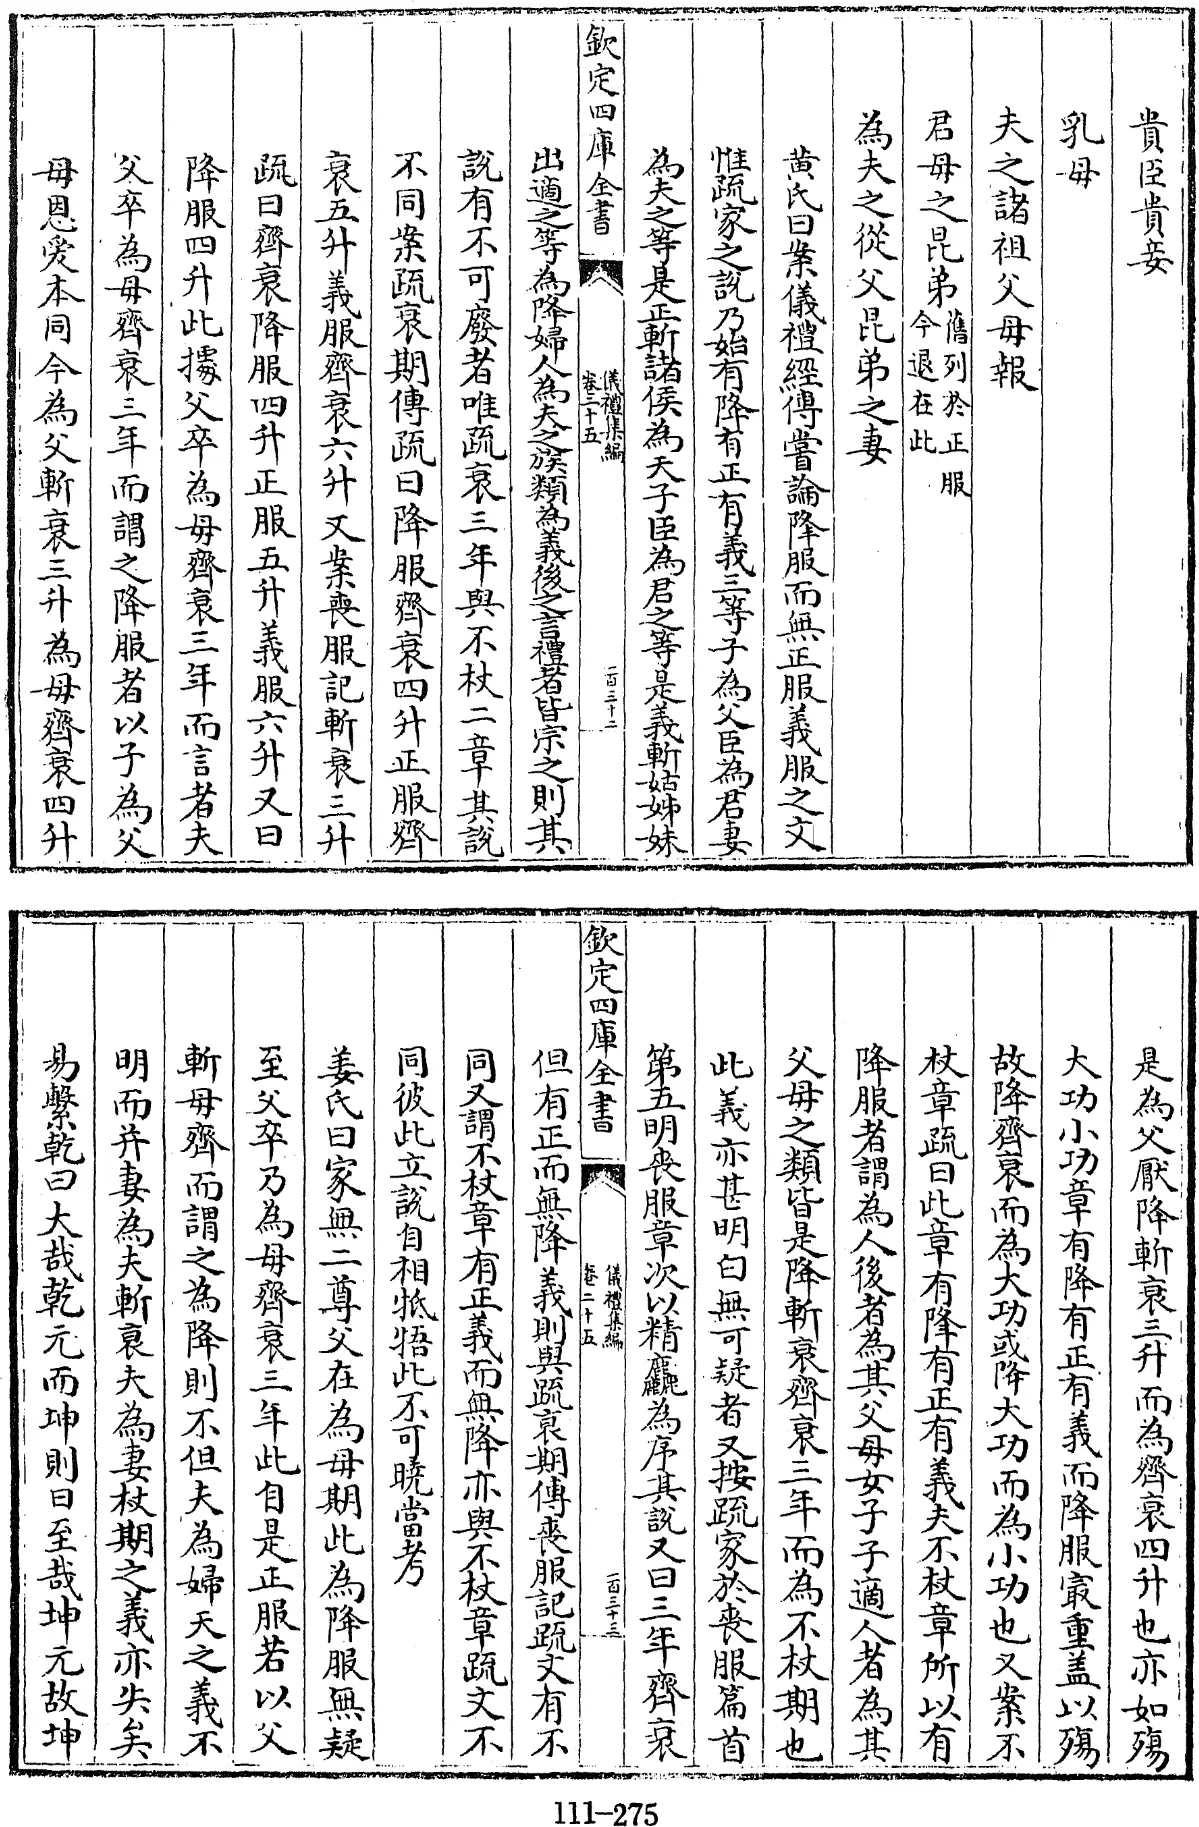 貴臣貴妾
乳母
夫之諸祖父母報
君母之昆弟舊列於正服今退在此
為夫之從父昆弟之妻
黄氏曰案儀禮經傳嘗論降服而無正服義服之文
惟疏家之說乃始有降有正有義三等子為父臣為君妻
為夫之等是正斬諸侯為天子臣為君之等是義斬姑姊妹
欽定四庫全書
儀禮集編
卷二十五
一百三十二
出適之等為降婦人為夫之族類為義後之言禮者皆宗之則其
說有不可廢者唯疏衰三年與不杖二章其說
不同案疏衰期傳疏曰降服齊衰四升正服齊
衰五升義服齊衰六升又案喪服記斬衰三升
疏曰齊衰降服四升正服五升義服六升又曰
降服四升此據父卒為母齊衰三年而言者夫
父卒為母齊衰三年而謂之降服者以子為父
母恩爱本同今為父斬衰三升為母齊衰四升
是為父厭降斬衰三升而為齊衰四升也亦如殤
大功小功章有降有正有義而降服㝡重盖以殤
故降齊衰而為大功或降大功而為小功也又案不
杖章疏曰此章有降有正有義夫不杖章所以有
降服者謂為人後者為其父母女子子適人者為其
父母之類皆是降斬衰齊衰三年而為不杖期也
此義亦甚明白無可疑者又按疏家於喪服篇首
第五明喪服章次以精麤為序其說又曰三年齊衰
欽定四庫全書
儀禮集編
卷二十五
一百三十三
但有正而無降義則與疏衰期傳喪服記疏文有不
同又謂不杖章有正義而無降亦與不杖章疏文不
同彼此立說自相牴牾此不可曉當考
姜氏曰家無二尊父在為母期此為降服無疑
至父卒乃為母齊衰三年此自是正服若以父
斬母齊而謂之為降則不但夫為婦天之義不
明而并妻為夫斬衰夫為妻杖期之義亦失矣
易繫乾曰大哉乾元而坤則曰至哉坤元故坤
111-275